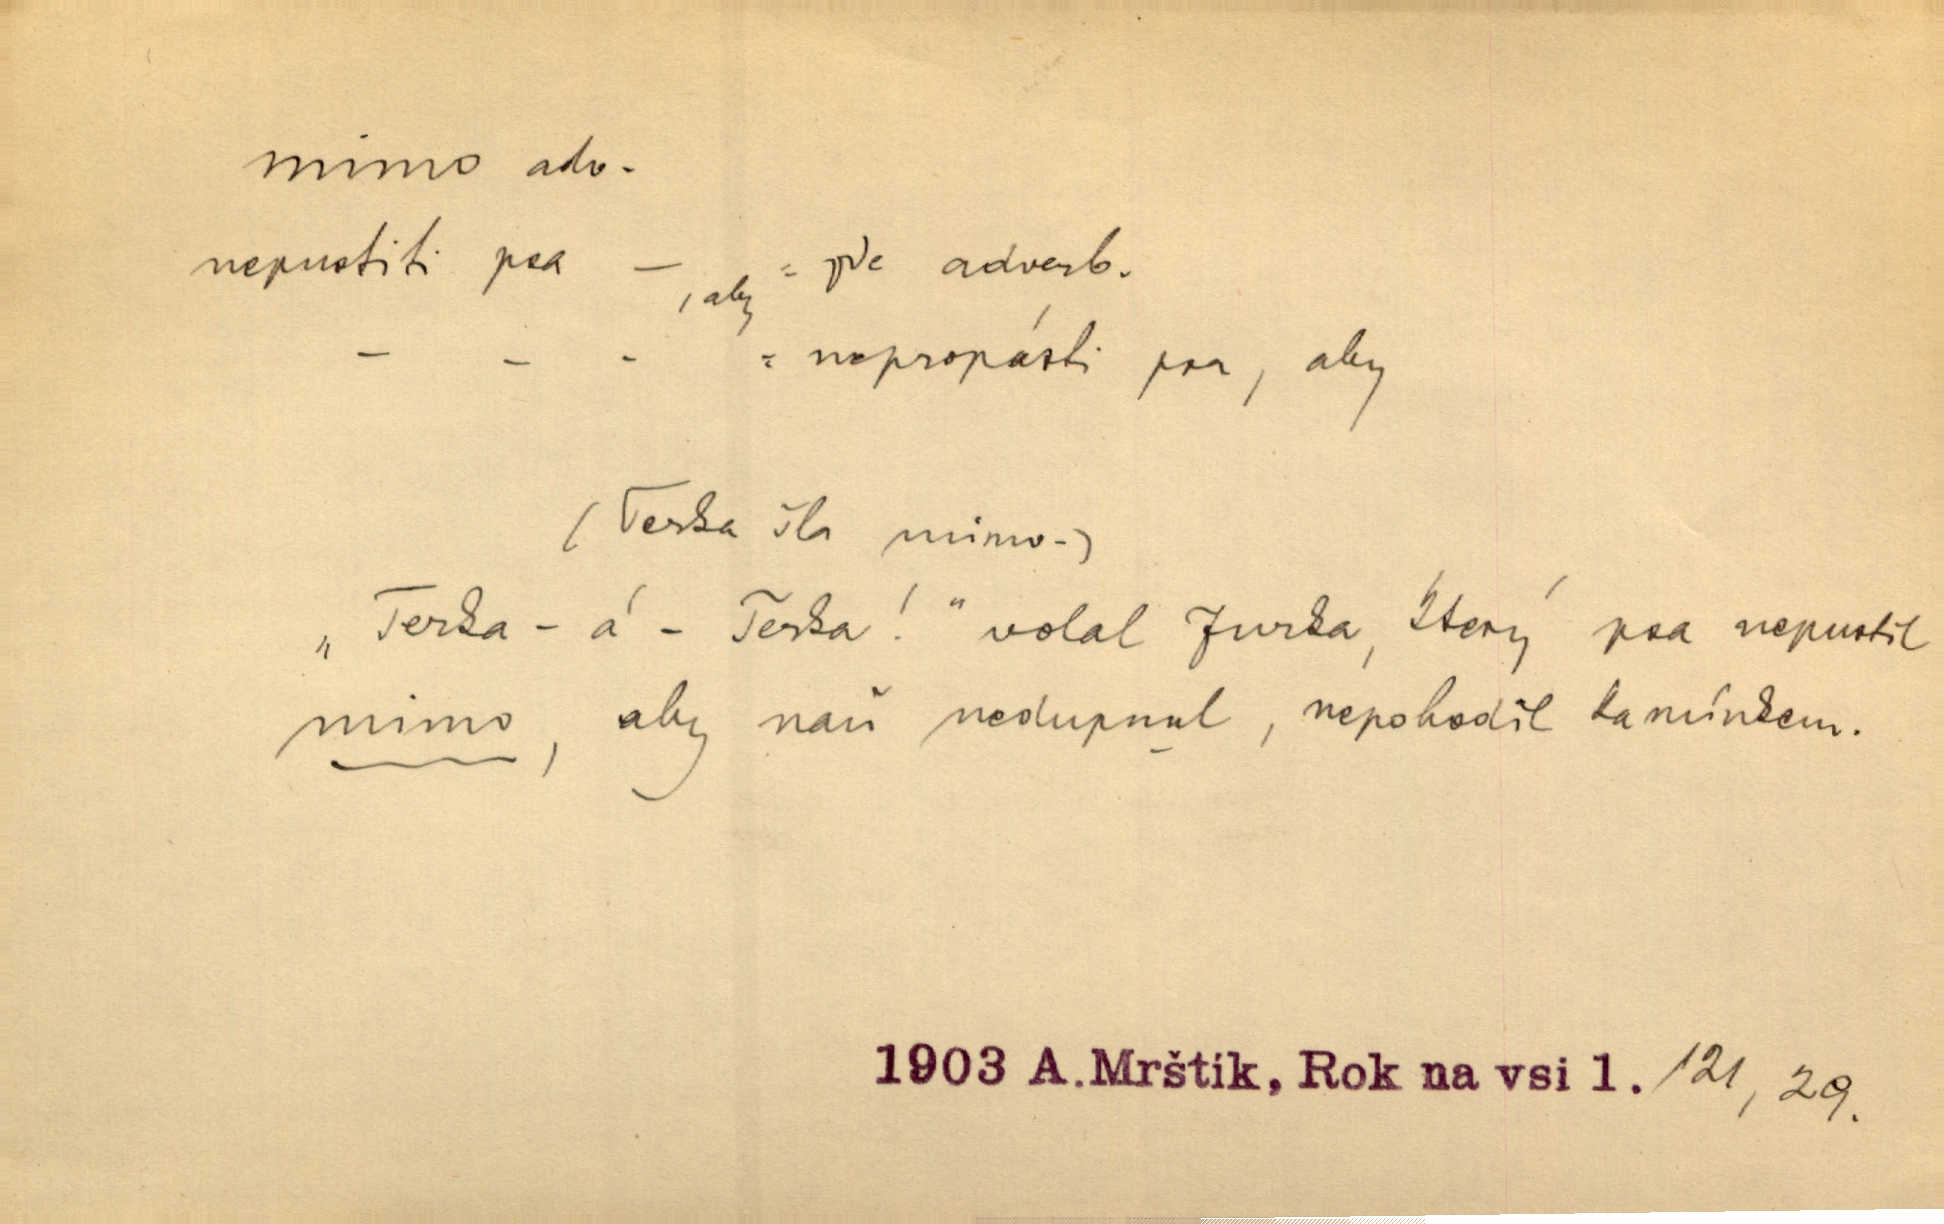 mimo adv.
nepustiti psa — , aby = jde adverb.
— – - = nepropásti psa, aby
(Terka šla mimo-)
„Terka - á - Terka!“ volal Jurka, který psa nepustil
mimo, aby naň nedupnul, nepohodil kamínkem.
1903 A. Mrštík, Rok na vsi 1. 121, 29.